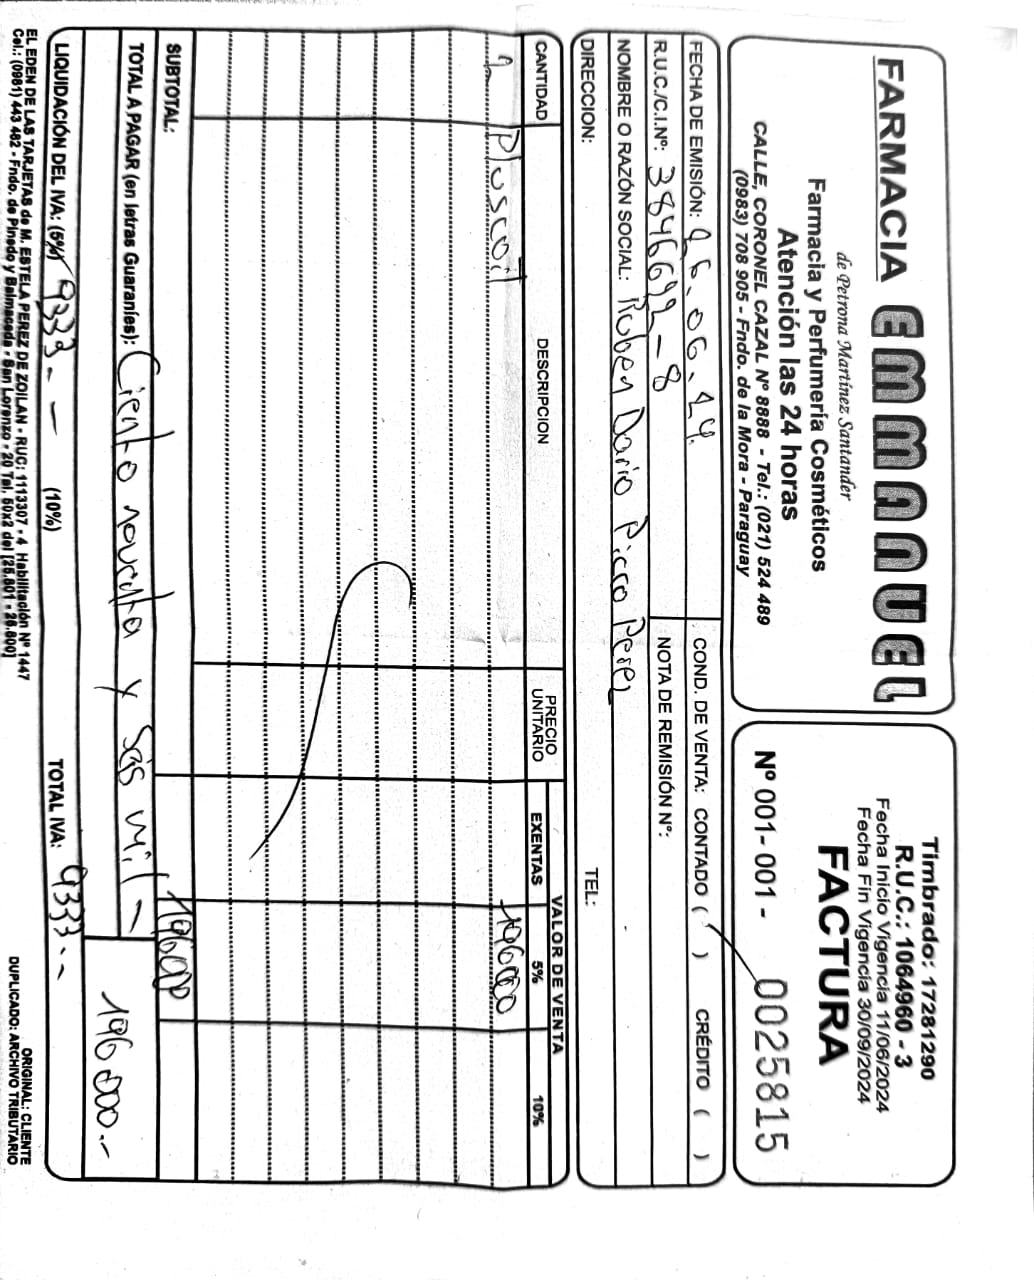 FARMACIA EMMANUEL
de Petrona Martínez Santander
Farmacia y Perfumería Cosméticos
Atención las 24 horas
CALLE, CORONEL CAZAL Nº 8888 - Tel.: (021) 524 489
(0983) 708 905 - Fndo. de la Mora - Paraguay
Timbrado: 17281290
R.U.C.: 1064960 - 3
Fecha Inicio Vigencia 11/06/2024
Fecha Fin Vigencia 30/09/2024
FACTURA
Nº 001- 001 - 0025815
FECHA DE EMISIÓN: 26.06.24. COND. DE VENTA: CONTADO ( ) CRÉDITO ( )
R.U.C./C.I.Nº: 3846692-8 NOTA DE REMISIÓN Nº:
NOMBRE O RAZÓN SOCIAL: Ruben Dario Picco Perez
DIRECCION: TEL:
CANTIDAD DESCRIPCION PRECIO UNITARIO VALOR DE VENTA
EXENTAS 5% 10%
2 Pluscoil 196000
SUBTOTAL: 196000
TOTAL A PAGAR (en letras Guaraníes): Ciento noventa y seis mil -
196000.-
LIQUIDACIÓN DEL IVA: (5%) 9333.- - (10%) TOTAL IVA: 9333.-
EL EDEN DE LAS TARJETAS de M. ESTELA PEREZ DE ZOILAN - RUC: 1113307 - 4 Habilitación Nº 1447
Cel.: (0981) 443 482 - Fndo. de Pinedo y Balmaceda - San Lorenzo - 20 Tal. 50x2 del [25.601 - 26.600]
ORIGINAL: CLIENTE
DUPLICADO: ARCHIVO TRIBUTARIO